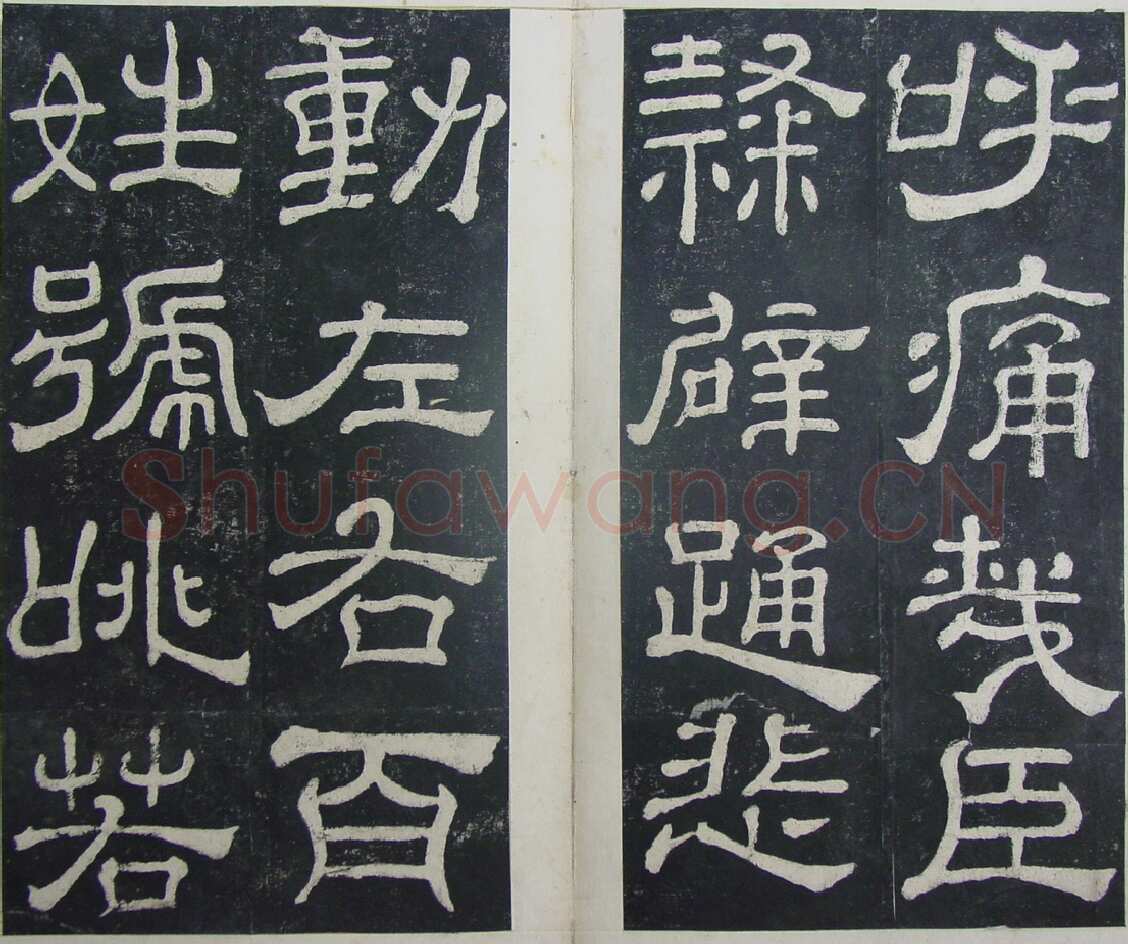 呼痛㢤臣
隸辟踊悲
動左右百
姓號咷若
Shufawang.CN